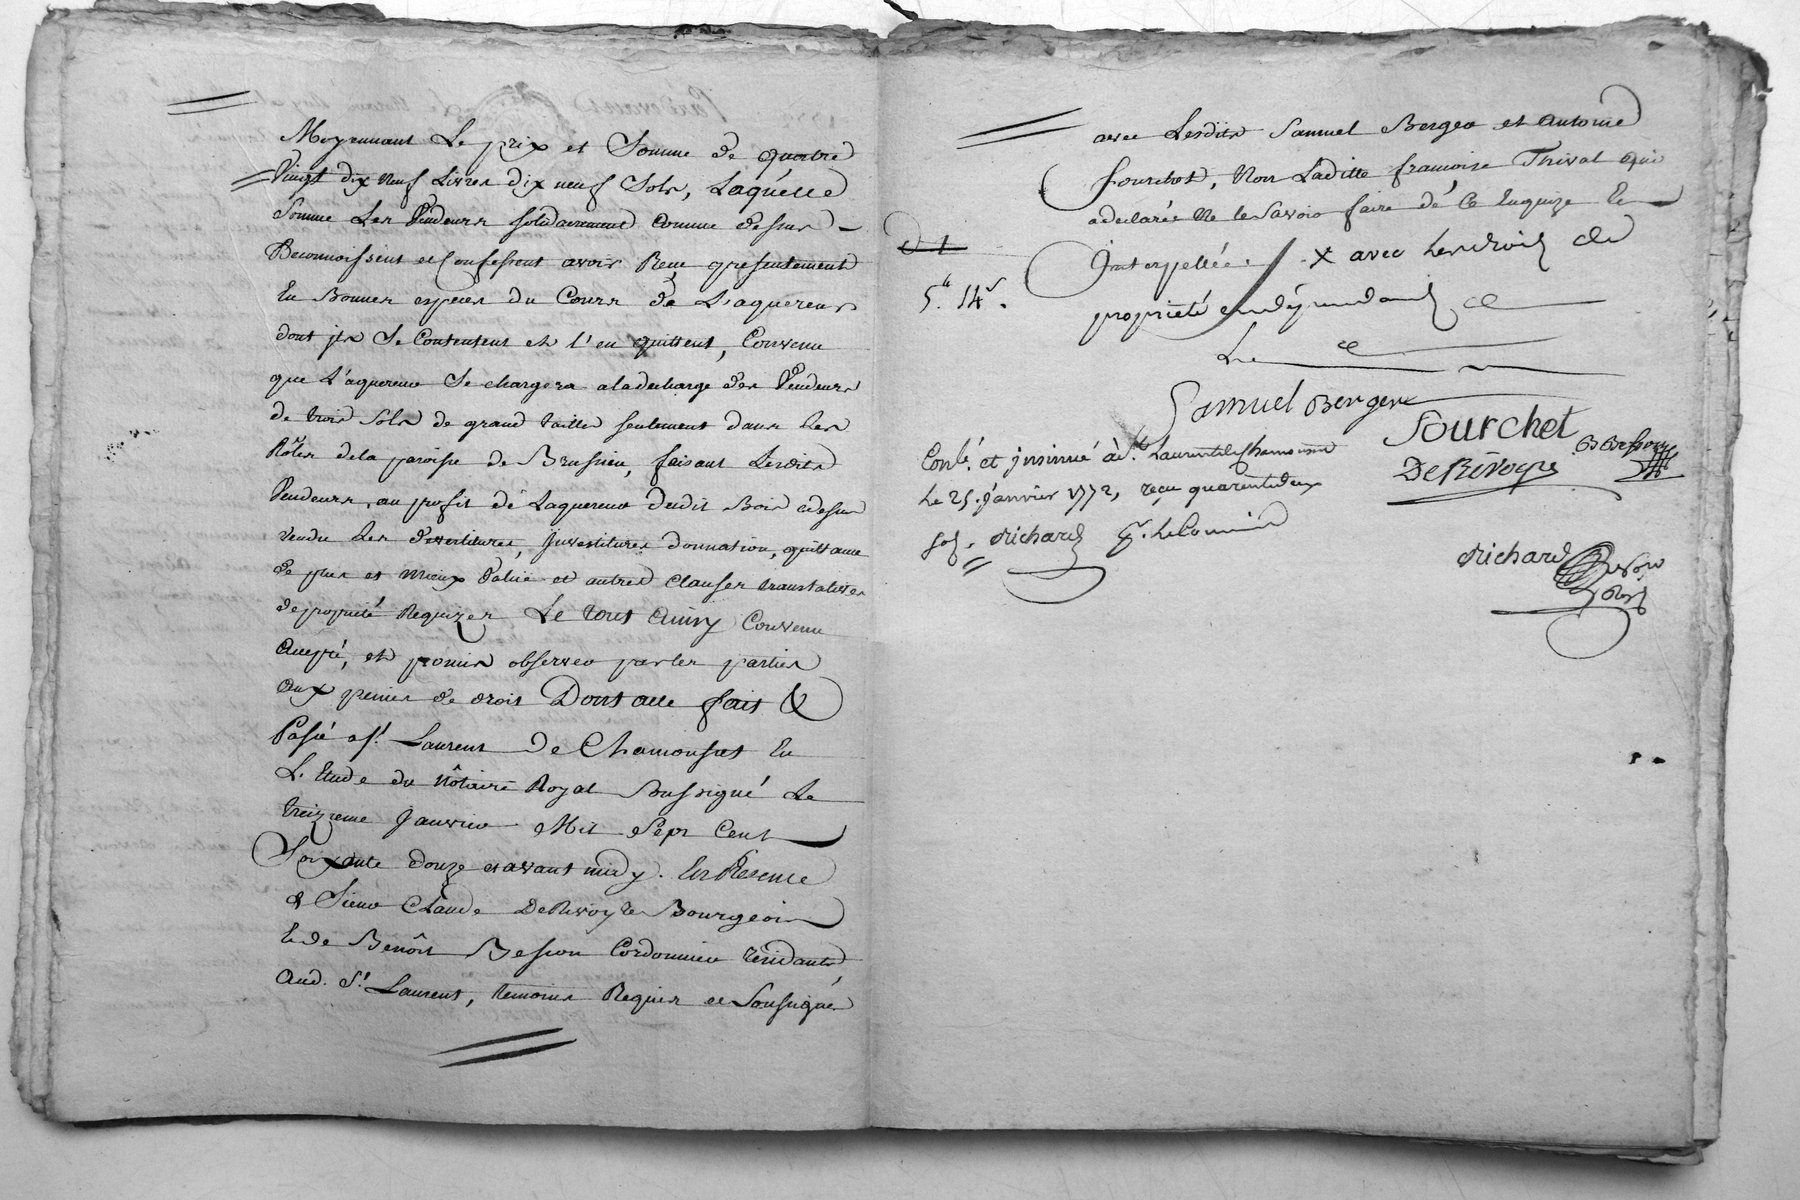 Moyennant Le prix et Somme de quatre
Vingt dix neuf Livres dix neuf Sols, Laquelle
Somme Les Vendeurs solidairement comme dessus
Reconnoissent et Confessent avoir Reçu presentement
En Bonnes especes du Cours de L'aquereur
dont jls Se Contentent et l'en quittent, Convenu
que L'aquereur Se chargera aladecharge des Vendeurs
de trois Sols de grand taille seulement dans Les
Rôles dela paroisse de Brussieu, faisant Lesdits
Vendeurs, au profit de Laquereur dudit Bois cydessus
vendu Les devestitures, Jnvestitures donnation, quittance
de plus et mieux Value et autres Clauses translatives
de propriété Requizes Le tout Ainsy Convenu
Accepté, et promis observer par les parties
aux peines de droit Dont acte fait &
Passé a St. Laurent De Chamousset En
L'Etude du Nôtaire Royal Soussigné Le
treizieme Janvier Mil Sept Cent
Soixante douze avant midy. En Présence
d Sieur Claude DeRivoyre Bourgeois
Et de Benôit Besson Cordonnier résidants
Aud. St. Laurent, temoins Requis et Soussignés
avec Lesdits Samuel Berger et Antoine
Fourchet, Non Laditte françoise Thival qui
a declarée Ne le Savoir faire de Ce Enquize Et
Jnterpellée. x avec Les droits de
propriété en dépendants
5.# 14.s
Samuel Berger
Fourchet
B Besson
DeRivoyre
Conlé. et jnsinué à St. Laurent de Chamousset
Le 25. Janvier 1772, reçu quarente deux
sols. Richard
Richard